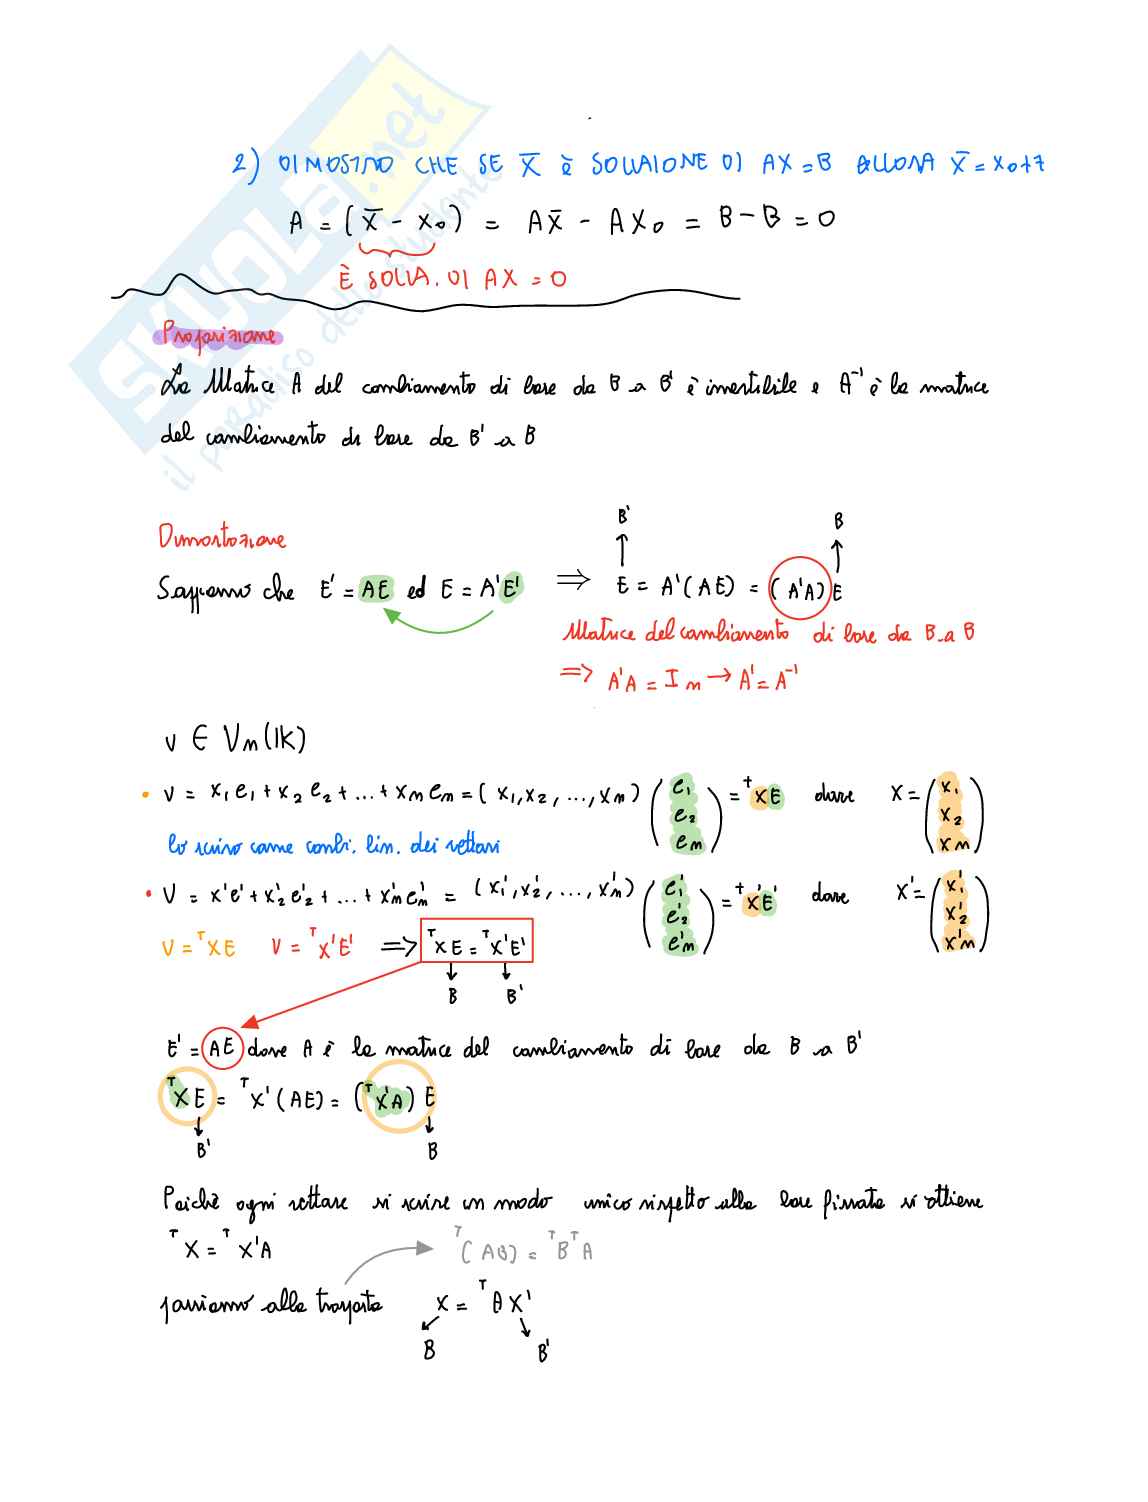 SKUOLA.net
il paradiso dello studente
2) DIMOSTRO CHE SE X̄ È SOLUAIONE DI AX=B ALLORA X̄ = X₀+Z
A = (X̄ - X₀) = AX̄ - AX₀ = B-B = 0
È SOLUA. DI AX = 0
Proposizione
La Matrice A del cambiamento di base da B a B' è invertibile e A⁻¹ è la matrice
del cambiamento di base da B' a B
Dimostrazione
B' B
Sappiamo che E' = AE ed E = A'E' ⇒ E = A'(AE) = (A'A)E
Matrice del cambiamento di base da B a B
⇒ A'A = Im → A' = A⁻¹
v ∈ Vm(IK)
• v = x₁e₁ + x₂e₂ + ... + xmem = (x₁, x₂, ..., xm) (e₁ e₂ em) = ᵀXE dove X = (x₁ x₂ xm)
lo scrivo come comb. lin. dei vettori
• V = x'e' + x'₂e'₂ + ... + x'me'm = (x₁', x₂', ..., x'm) (e₁' e'₂ e'm) = ᵀX'E' dove X' = (x₁' x'₂ x'm)
V = ᵀXE V = ᵀX'E' ⇒ ᵀXE = ᵀX'E'
B B'
E' = AE dove A è la matrice del cambiamento di base da B a B'
ᵀXE = ᵀX'(AE) = (ᵀX'A)E
B' B
Poichè ogni vettore si scrive in modo unico rispetto alla base fissata si ottiene
ᵀX = ᵀX'A ᵀ(AB) = ᵀBᵀA
passiamo alla trasposta X = ᵀAX'
B B'